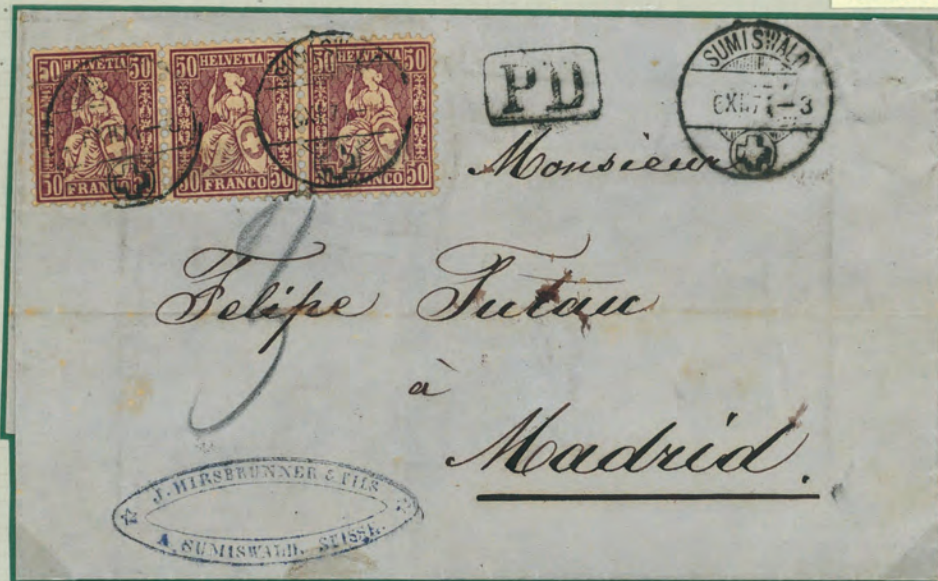 50 HELVETIA 50
50 FRANCO 50
50 HELVETIA 50
50 FRANCO 50
50 HELVETIA 50
50 FRANCO 50
PD
SUMISWALD
6XII71-3
Monsieur
Felipe
à
Madrid.
J. HIRSBRUNNER & FILS
A SUMISWALD, SUISSE.